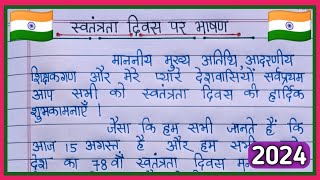 स्वतंत्रता दिवस पर भाषण
माननीय मुख्य अतिथि, आदरणीय
शिक्षकगण और मेरे प्यारे देशवासियों सर्वप्रथम
आप सभी को स्वतंत्रता दिवस की हार्दिक
शुभकामनाएँ !
जैसा कि हम सभी जानते हैं कि
आज 15 अगस्त है और हम सभी
देश का 78वाँ स्वतंत्रता दिवस
2024